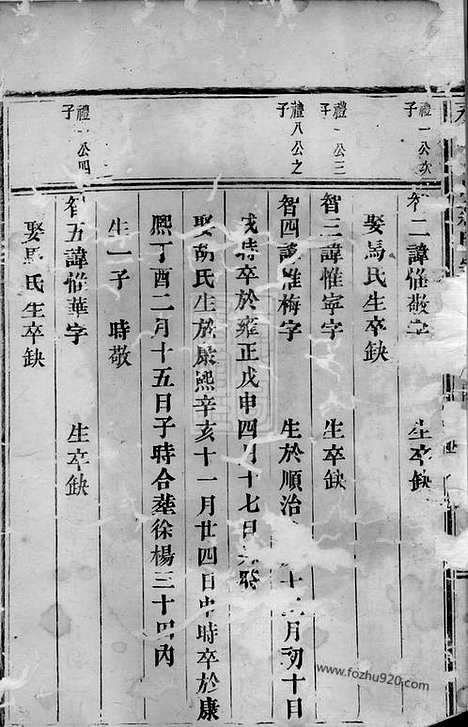 禮一公次子
智二諱惟敬字　生卒缺
娶馬氏生卒缺
禮一公三子
智三諱惟寧字　生卒缺
禮八公之子
智四諱惟梅字　生於順治 十二月初十日
戌時卒於雍正戊申四月十七日 時
娶胡氏生於康熙辛亥十一月廿四日申時卒於康
熙丁酉二月十五日子時合塟徐楊三十四內
生一子　時敬
禮一公四子
智五諱惟華字　生卒缺
娶馬氏生卒缺
www.fozhu920.com